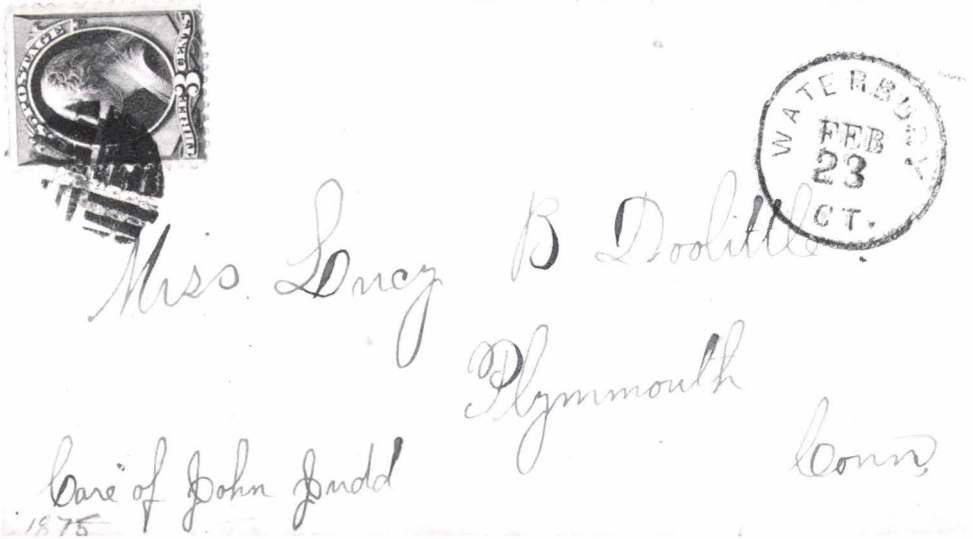 U.S. POSTAGE
THREE 3 CENTS
WATERBURY
FEB
23
CT.
Miss. Lucy B Doolittle.
Plymmouth
Conn
Care of John Judd
1875